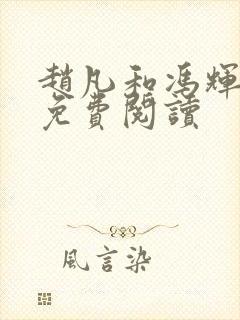 趙凡和馮輝
免費閱讀
風言染